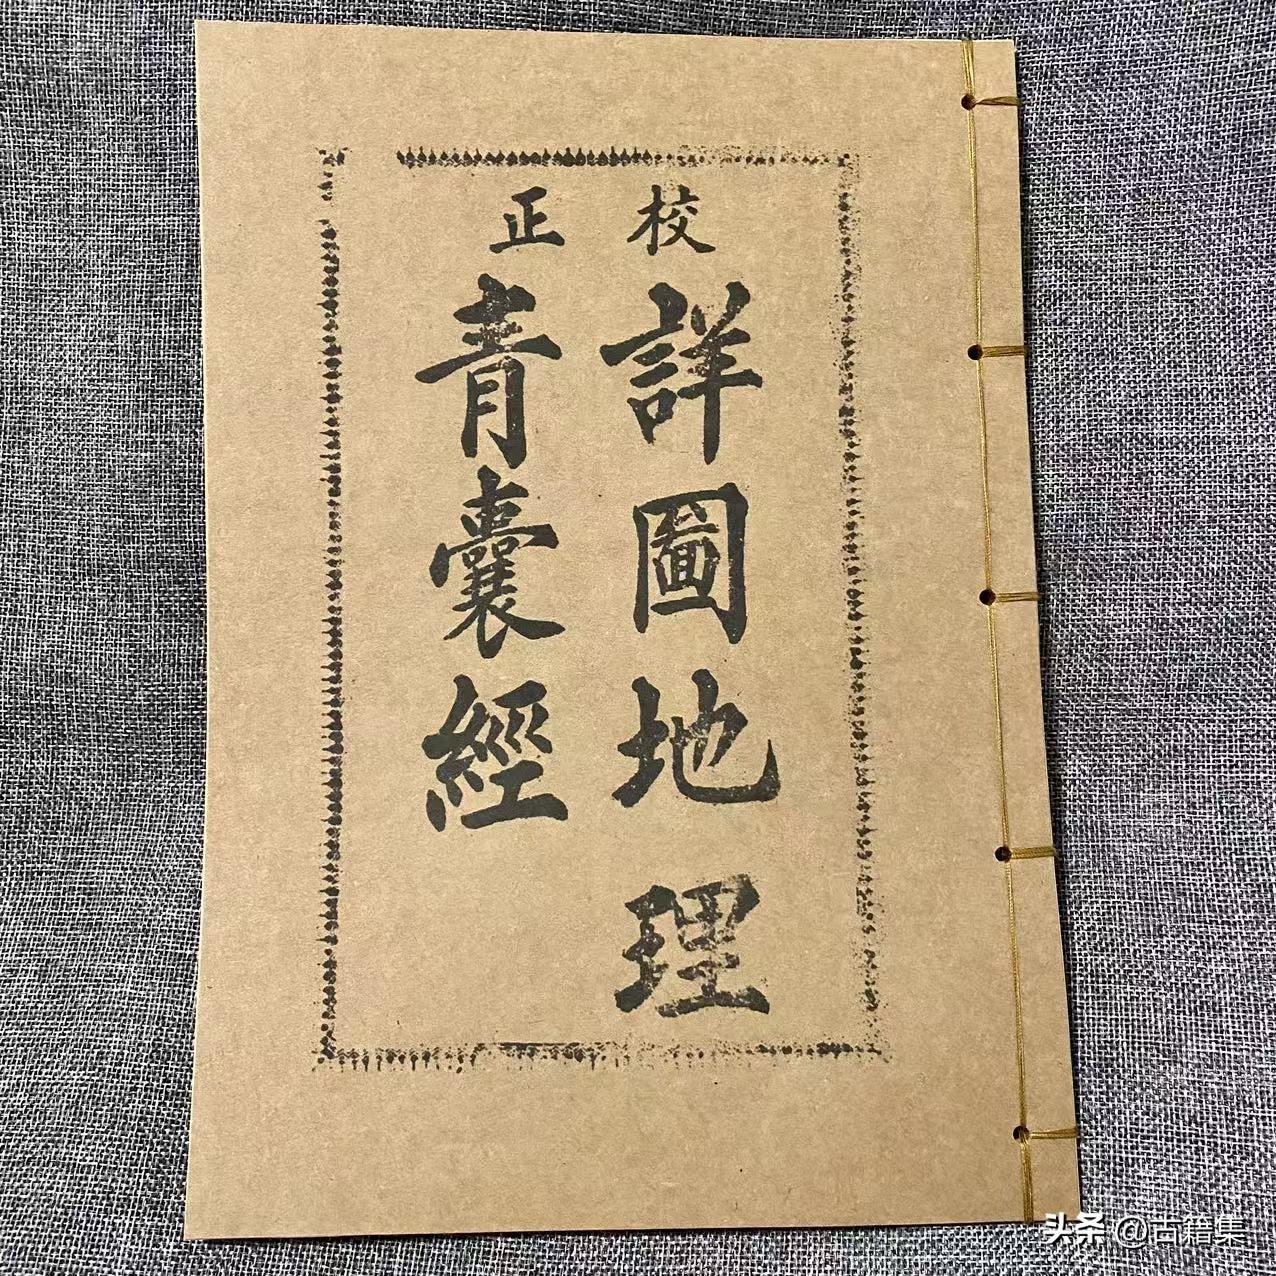 校正
詳圖地理
青囊經
头条 @古籍集